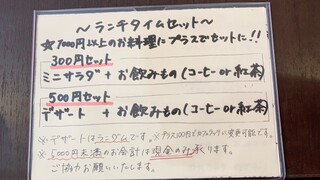 ～ランチタイムセット～
★1000円以上のお料理にプラスでセットに!!
300円セット
ミニサラダ + お飲みもの(コーヒー or 紅茶)
500円セット
デザート + お飲みもの(コーヒー or 紅茶)
※デザートはランダムです。※プラス100円でカフェラテに変更可能です。
※5000円未満のお会計は現金のみ承ります。
ご協力お願いいたします。